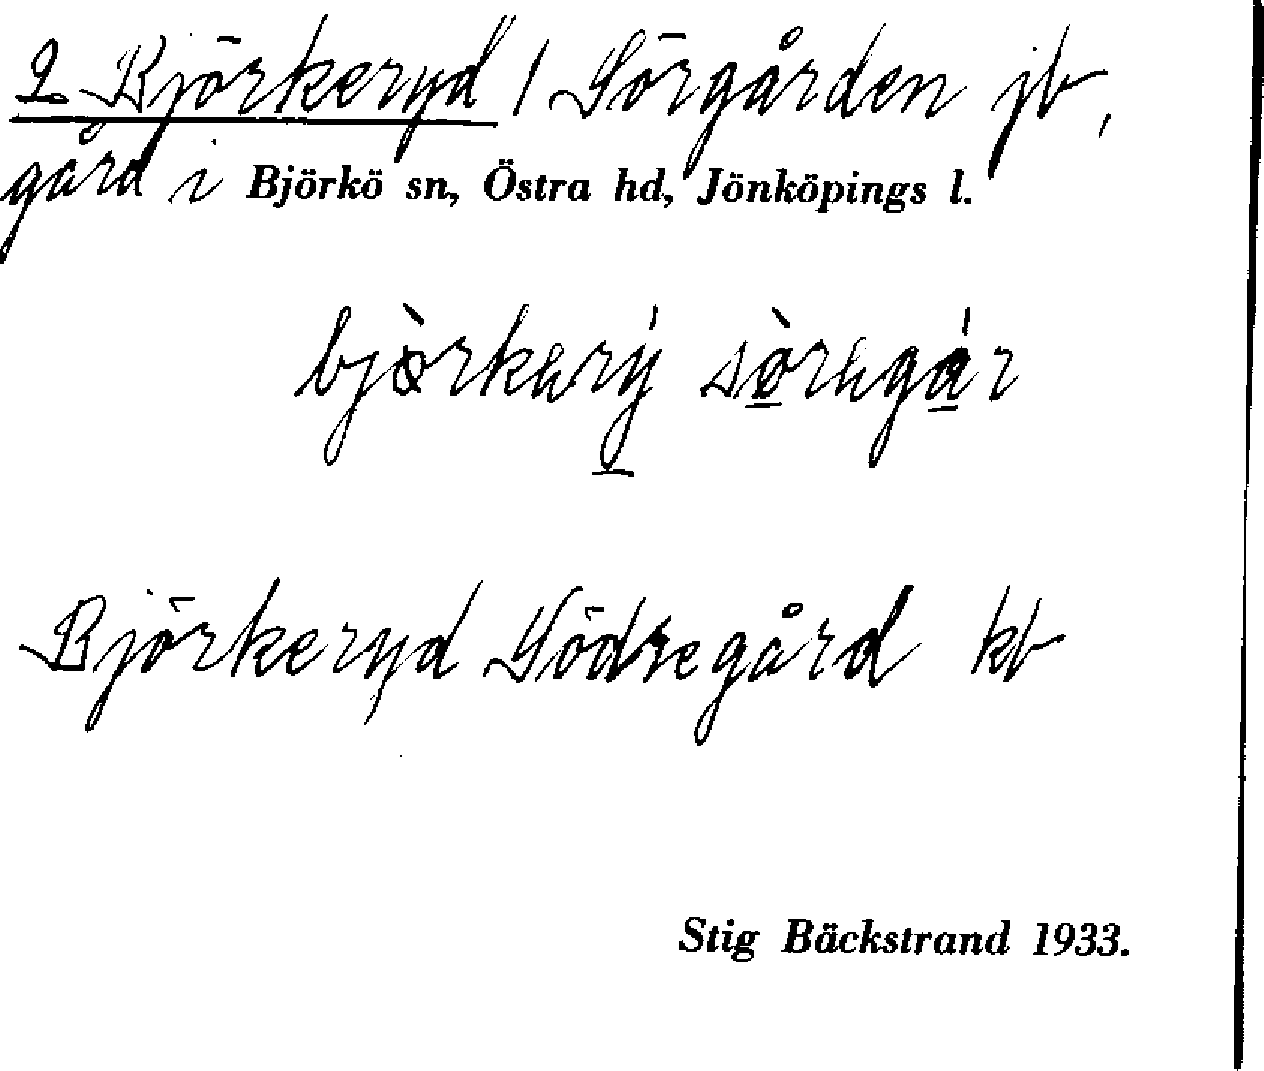 2 Björkeryd / Sörgården jb,
gård i Björkö sn, Östra hd, Jönköpings l.
bjòrkərý sòrəgár
Björkeryd Södregård kb
Stig Bäckstrand 1933.